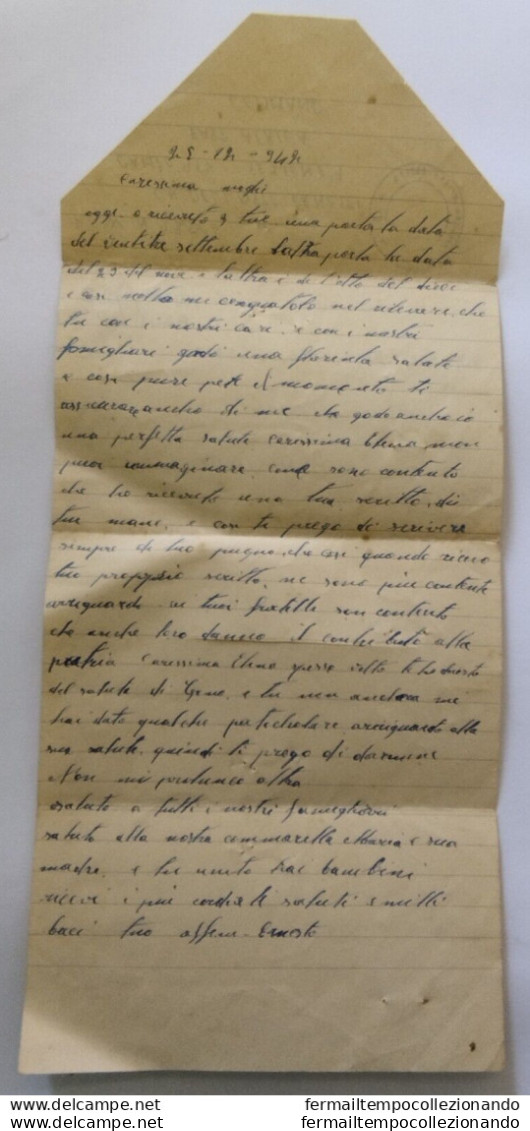 25-12-942
Carissima moglie
oggi o ricevuto 3 tue una porta la data
del ventitre settembre laltra porta la data
del 23 del mese e laltra è de l'otto del dieci
e così nella me congratolo nel ricevere che
tu con i nostri cari e con i nostri
famigliari godi una fiorenta salute
e così pure per il momento ti
assicuro ancho di me che godo anchio
una perfetta salute Carissima Elena non
puoi immaginare come sono contento
che ho ricevuto uno tuo scritto di
tue mane, e così ti prego di scrivere
sempre di tuo pugno, che così quando ricevo
tuo proppio scritto, ne sono più contento
arriguardo ai tuoi fratelli son contento
che anche loro danno il contributo alla
patria Carissima Elena spesse volte ti ho chiesto
del salute di e tu non ancora mi
hai dato qualche particholare arriguardo alla
sua salute, quindi ti prego di darmene
Non mi prolunco altro
saluto a tutti i nostri famigliari
saluto alla nostra commarella Maria e sua
madre, e tu unito hai bambini
ricevi i più cordiali saluti e milli
baci tuo affmo Ernesto
fermailtempocollezionando
fermailtempocollezionando